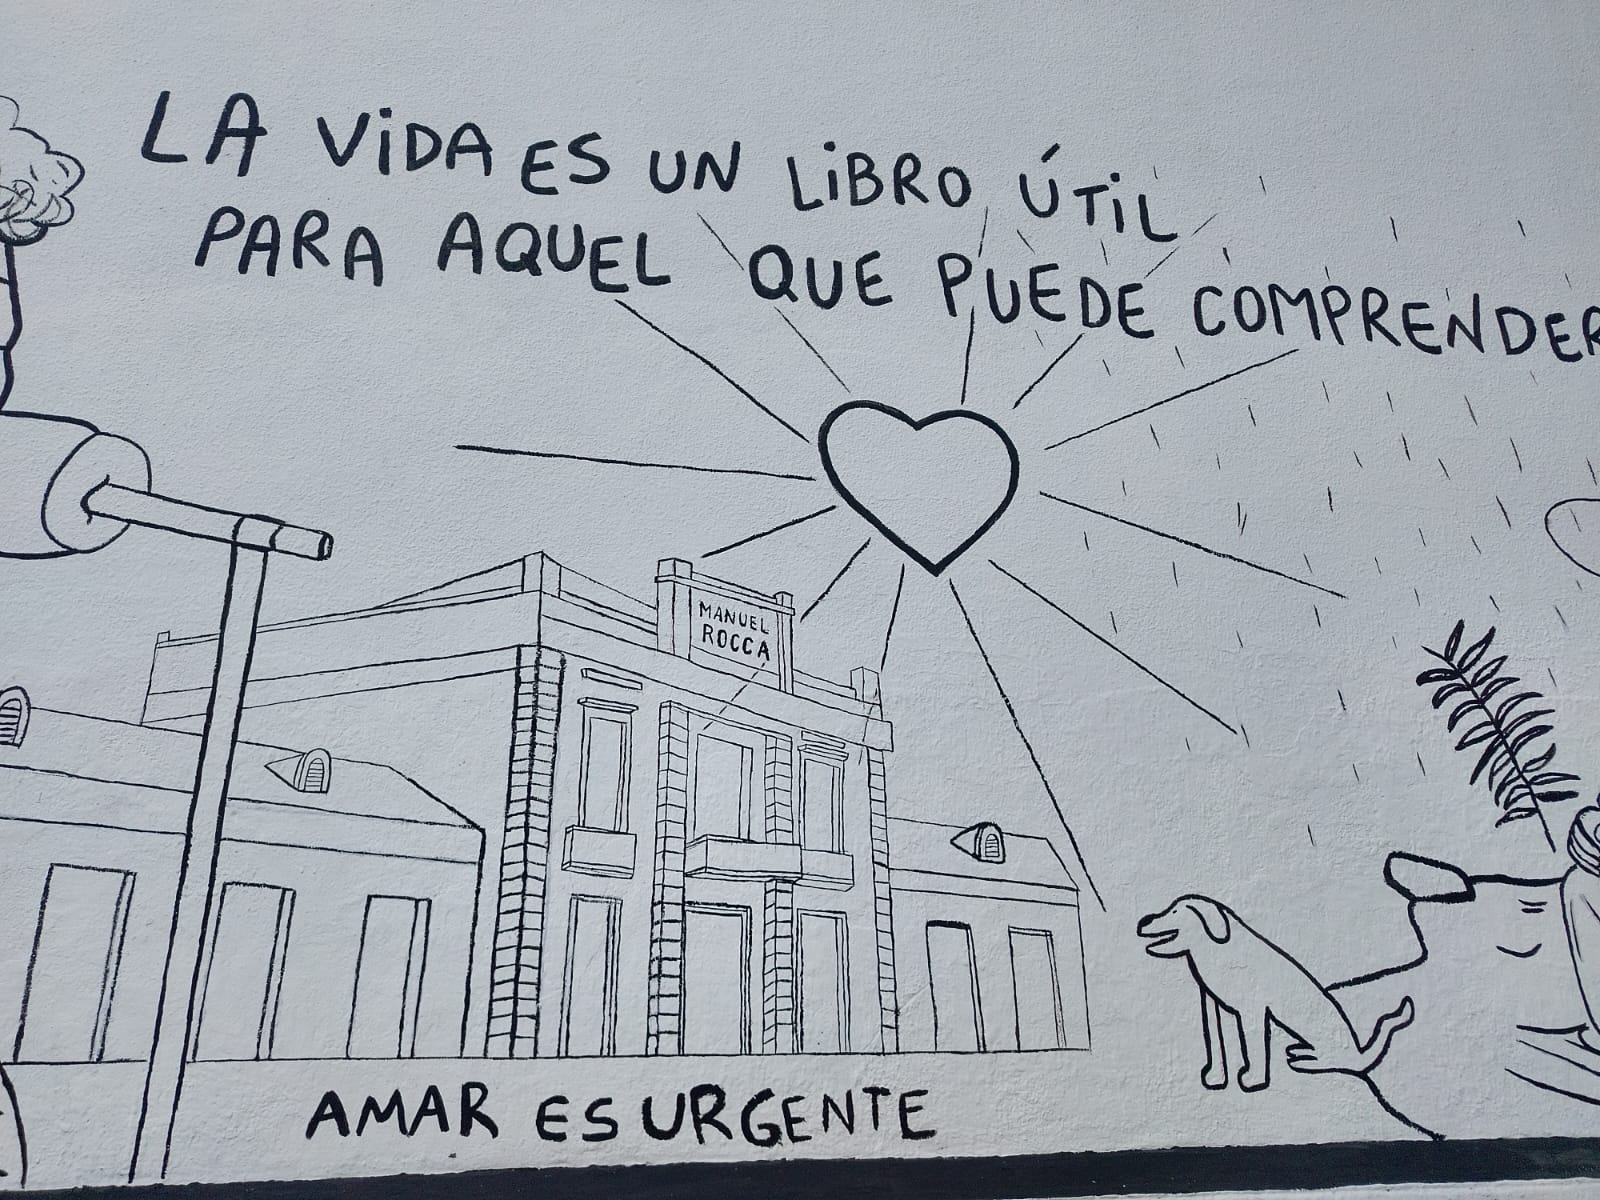 LA ViDA ES UN LiBRO ÚTiL
PARA AQUEL QUE PUEDE COMPRENDER
MANUEL
ROCCA
AMAR ES URGENTE